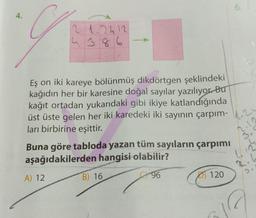 4.
6.
2 1 24 12
4 3 8 6
Eş on iki kareye bölünmüş dikdörtgen şeklindeki
kağıdın her bir karesine doğal sayılar yazılıyor. Bu
kağıt ortadan yukarıdaki gibi ikiye katlandığında
üst üste gelen her iki karedeki iki sayının çarpım-
ları birbirine eşittir.
Buna göre tabloda yazan tüm sayıların çarpımı
aşağıdakilerden hangisi olabilir?
A) 12 B) 16 C) 96 D) 120